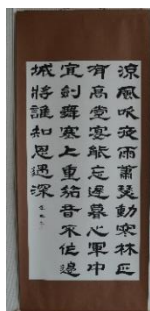 涼風吹夜雨蕭瑟動寒林正
有高堂宴能忘遲暮心軍中
宜劍舞塞上重笳音不作邊
城將誰知恩遇深